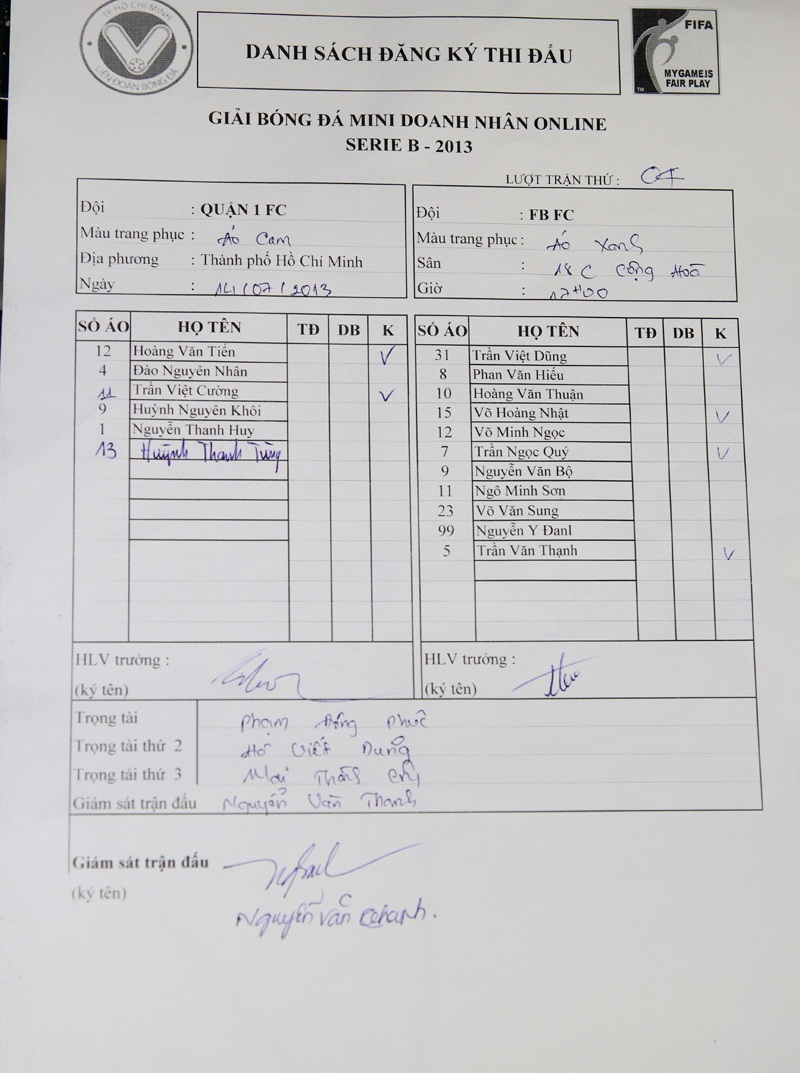 TP HỒ CHÍ MINH
LIÊN ĐOÀN BÓNG ĐÁ
DANH SÁCH ĐĂNG KÝ THI ĐẤU
FIFA
MY GAME IS
FAIR PLAY
TM
GIẢI BÓNG ĐÁ MINI DOANH NHÂN ONLINE
SERIE B - 2013
LƯỢT TRẬN THỨ :
Đội : QUẬN 1 FC
Màu trang phục : Áo Cam
Địa phương : Thành phố Hồ Chí Minh
Ngày : 14/07/2013
Đội : FB FC
Màu trang phục : Áo Xanh
Sân : 18C Cộng Hoà
Giờ : 17H00
SỐ ÁO HỌ TÊN TĐ DB K
12 Hoàng Văn Tiến V
4 Đào Nguyên Nhân
11 Trần Việt Cường V
9 Huỳnh Nguyên Khôi
1 Nguyễn Thanh Huy
13 Huỳnh Thanh Tùng
SỐ ÁO HỌ TÊN TĐ DB K
31 Trần Việt Dũng V
8 Phan Văn Hiếu
10 Hoàng Văn Thuận
15 Võ Hoàng Nhật V
12 Võ Minh Ngọc
7 Trần Ngọc Quý V
9 Nguyễn Văn Bộ
11 Ngô Minh Sơn
23 Võ Văn Sung
99 Nguyễn Y Đanl
5 Trần Văn Thạnh V
HLV trưởng :
(ký tên)
HLV trưởng :
(ký tên)
Trọng tài Phạm Phúc
Trọng tài thứ 2 Hồ Việt Dũng
Trọng tài thứ 3 Mai
Giám sát trận đấu Nguyễn Văn Thanh
Giám sát trận đấu
(ký tên)
Nguyễn Văn